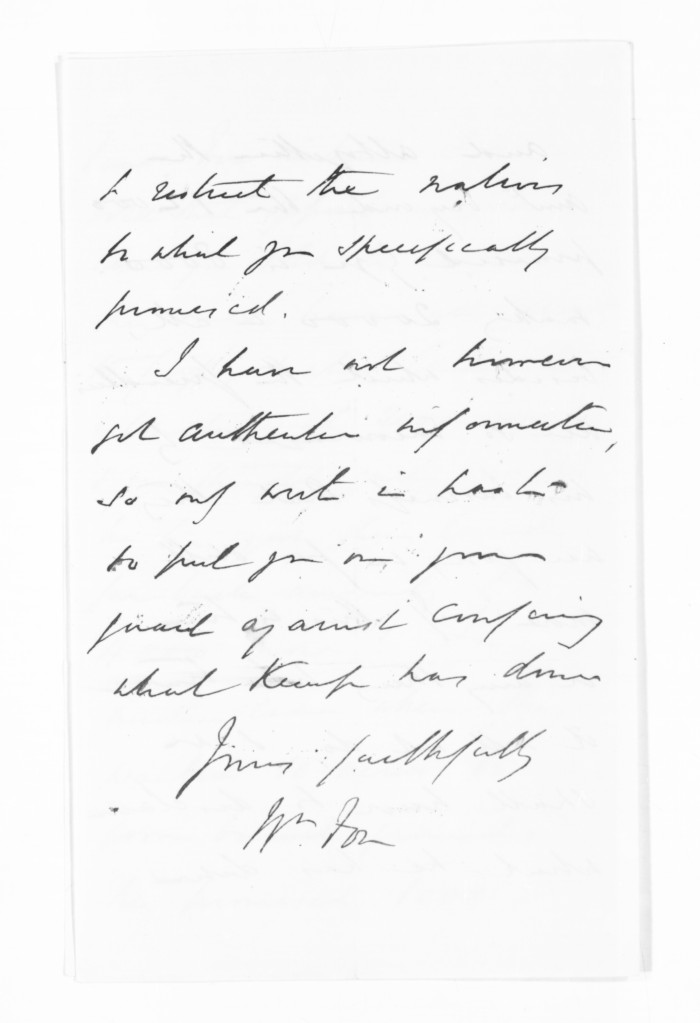 to restrict the natives
to what you specifically
promised.
I have not however
got authentic information,
so only write in haste
to put you on your
guard against confirming
what Kemp has done
Yours faithfully
Wm. Fox